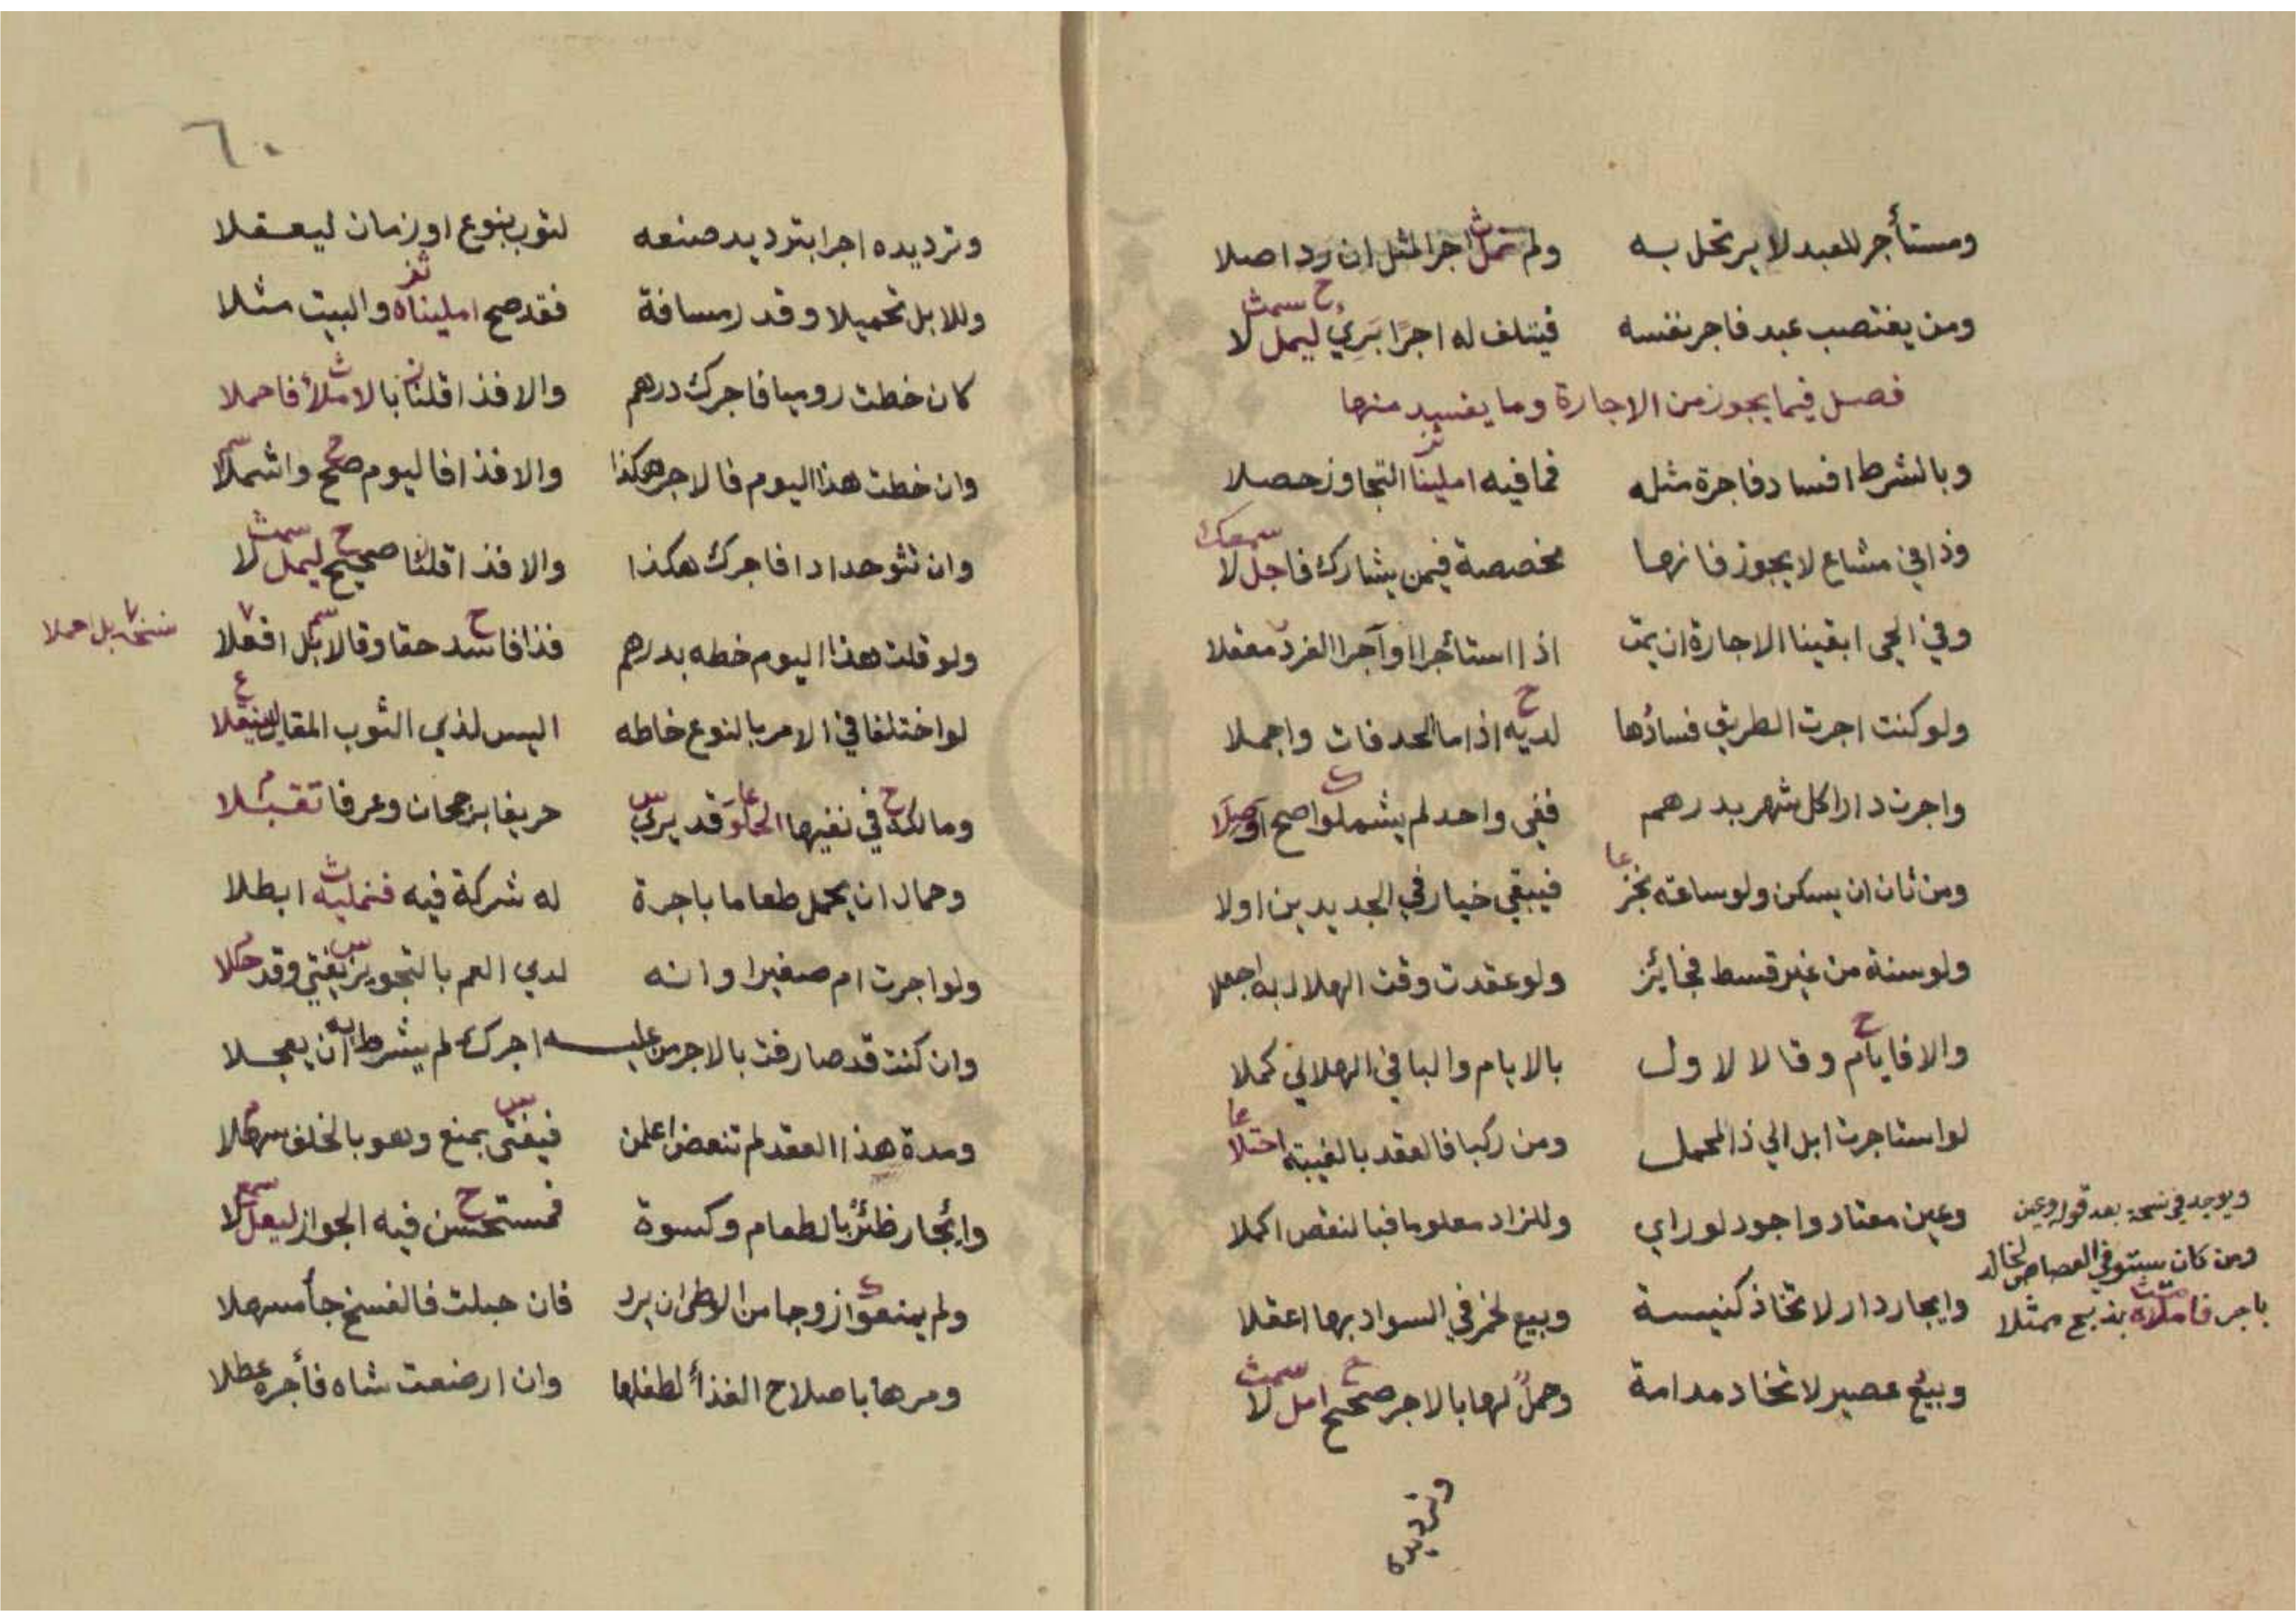 ومستأجر للعبد لا يرتحل به ولم نمل اجر المثل ان رد اصلا
ومن يغتصب عبد فاجر نفسه فيتلف له اجرًا يَرِي ليمل لا
فصل فيما يجوز من الاجارة وما يفسد منها
وبالشرط افساد فاجرة مثله فما فيه املينا التجاوز حصلا
وذا في مشاع لا يجوز فانها مخصصة فيمن يشارك فاجل لا
وفي الحى ابقينا الاجارة ان يمت اذا استأجرا او آجرا الفرد معقلا
ولو كنت اجرت الطريق فسادُها لديه اذا ما الحد فات واجملا
واجرت دارا كل شهر بدرهم ففى واحد لم يشملوا صح اوصلا
ومن ثان ان يسكن ولو ساعته نجز فيبقى خيار في الجديدين اولا
ولو سنة من غير قسط فجائز ولو عقدت وقت الهلال به اجعلا
والا فايام وقالا لاول بالايام والباقي الهلالي كملا
لو استاجرت ابل الي ذا المحمل ومن ركبا فالعقد بالغيبته احتلا
وعين معتاد واجود لو راي وللزاد معلوما فبالنقص اكملا
وايجار دار لاتخاذ كنيسة وبيع لخمر في السواد بها اعقلا
وبيعُ عصير لاتخاد مدامة وحملٌ لها بالاجر صحح امل لا
ويوجد في نسخة بعد قوله وعين
ومن كان يستوفي القصاص لخالد
باجر فاملاه بذبح ممثلا
وترديده
٦٠
وترديده اجرا بترديد صنعه لثوب بنوع او زمان ليعقلا
وللابل تحميلا وقدر مسافة فقد صح امليناه والبيت مثلا
كان خطت روميا فاجرك درهم والا فذا قلنا بالاملأ فاحملا
وان خطت هذا اليوم فالاجر هكذا والا فذا فاليوم صحح واشملا
وان تثو حدادا فاجرك هكذا والا فذا قلنا صحيح ليمل لا
ولو قلت هذا اليوم خطه بدرهم فذا فاسد حقا وقالا بل افعلا
نسخة بل احملا
لو اختلفا في الامر بالنوع خاطه اليس لذي الثوب المقال لينقلا
ومالك في نفيها الخلو قد يري حريفا برجحان وعرفا تقبلا
وحمال ان يحمل طعاما باجرة له شركة فيه فنمليه ابطلا
ولو اجرت ام صغيرا وانه لدي العم بالتجويز يفتي وقد حكلا
وان كنت قد صارفت بالاجر من عليه اجرك لم يشرط به ان يعجلا
ومدة هذا العقد لم تنعض اعلمن فيفتى بمنع وهو بالخلف سهلا
وإئجار ظئرٌ بالطعام وكسوة فمستحسن فيه الجواز ليعل لا
ولم يمنعوا زوجا من الوطى ان يرد فان حبلت فالفسخ جأ مسهلا
ومرها باصلاح الغذأ لطفلها وان ارضعت شاه فأجره عطلا